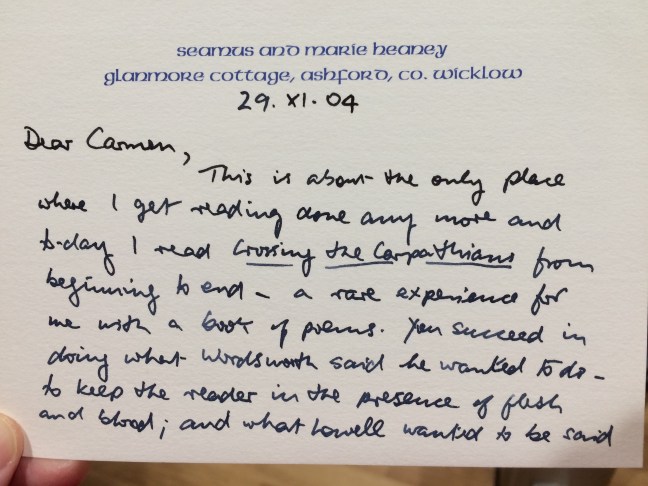 seamus and marie heaney
glanmore cottage, ashford, co. wicklow
29. XI. 04
Dear Carmen,
This is about the only place
where I get reading done any more and
to-day I read Crossing the Carpathians from
beginning to end – a rare experience for
me with a book of poems. You succeed in
doing what Wordsworth said he wanted to do –
to keep the reader in the presence of flesh
and blood; and what Lowell wanted to be said